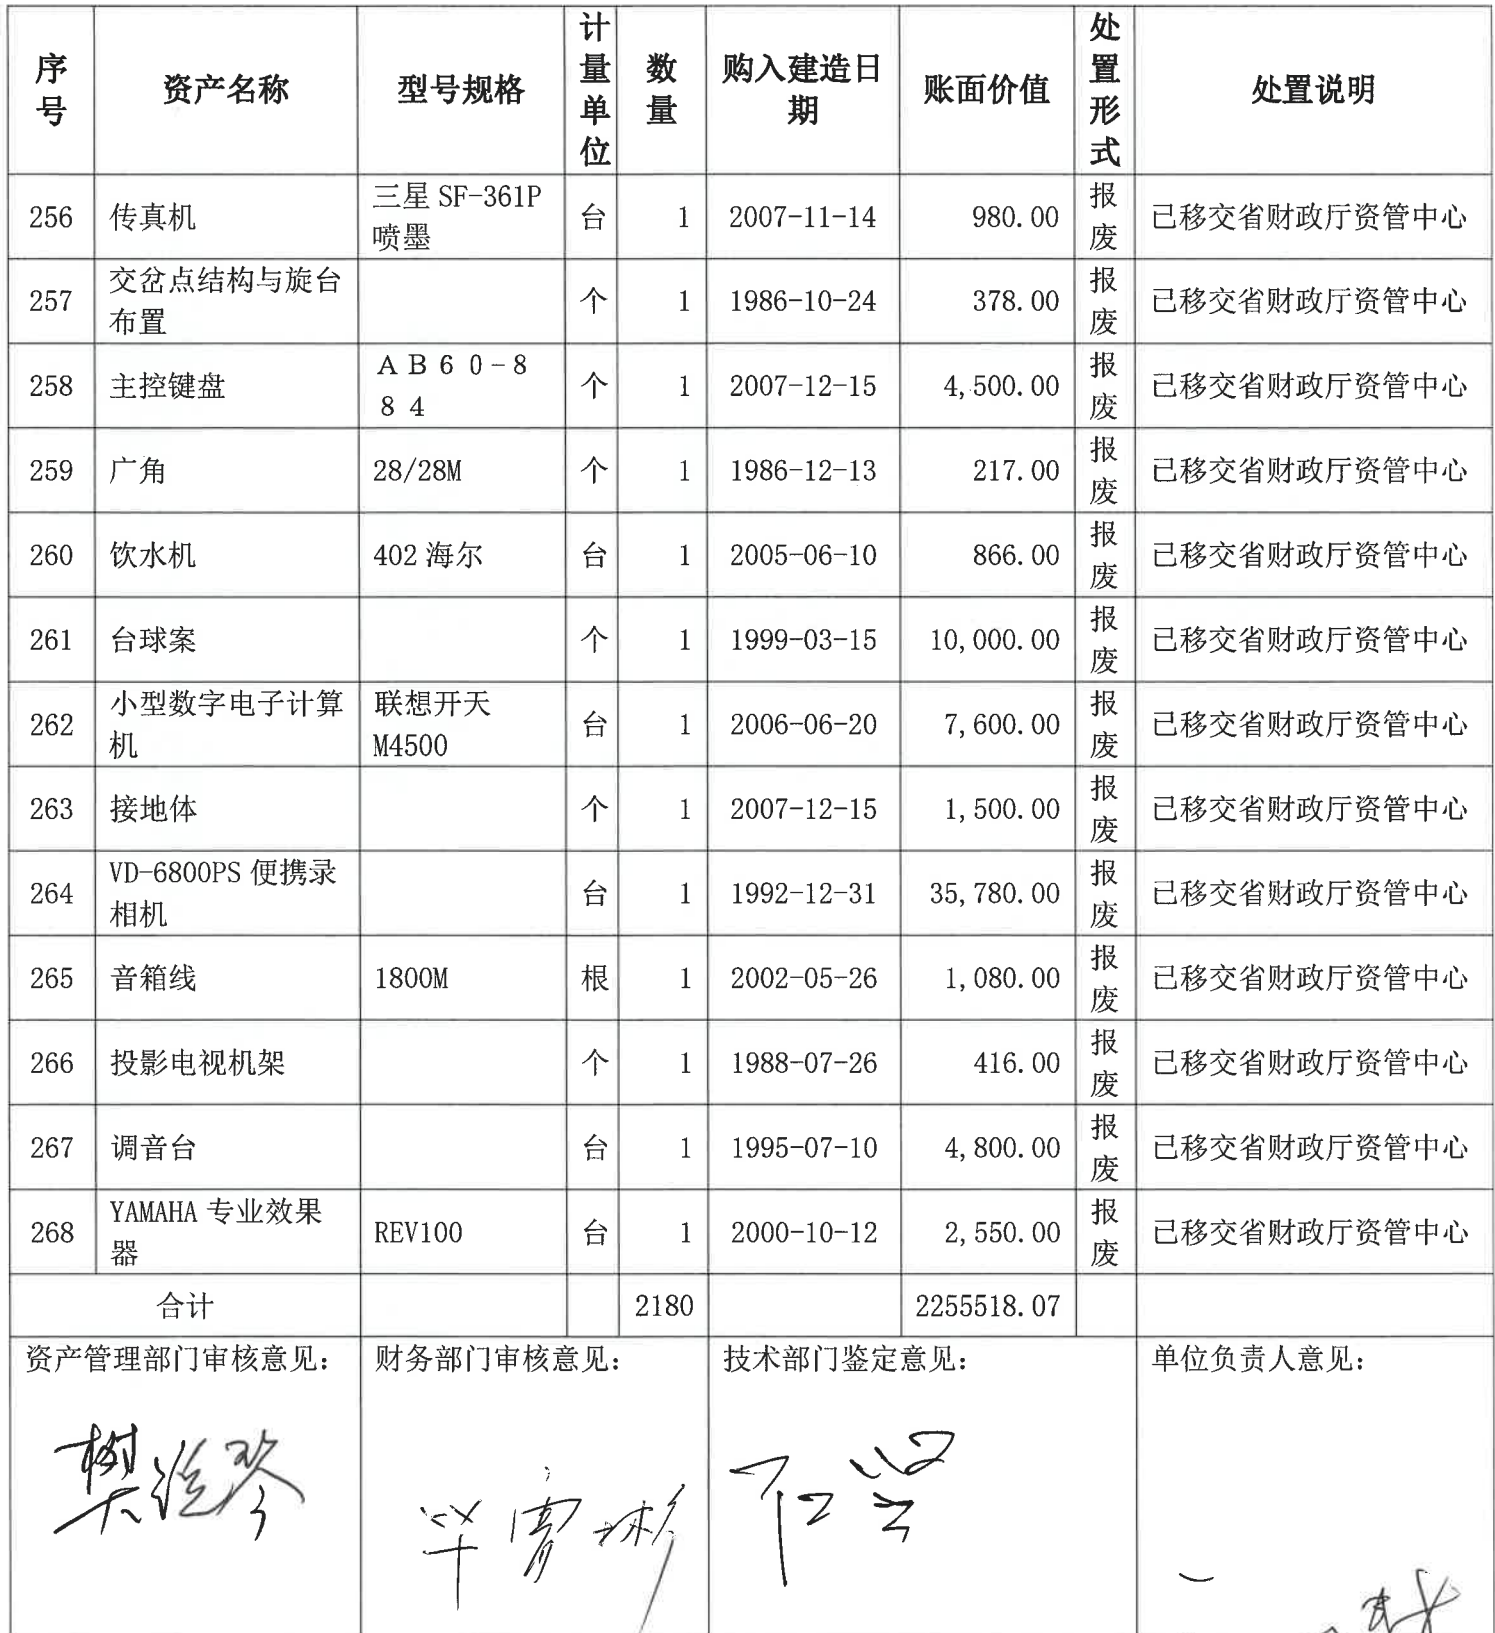 序号 资产名称 型号规格 计量单位 数量 购入建造日期 账面价值 处置形式 处置说明
256 传真机 三星 SF-361P 喷墨 台 1 2007-11-14 980.00 报废 已移交省财政厅资管中心
257 交岔点结构与旋台布置 个 1 1986-10-24 378.00 报废 已移交省财政厅资管中心
258 主控键盘 AB60-884 个 1 2007-12-15 4,500.00 报废 已移交省财政厅资管中心
259 广角 28/28M 个 1 1986-12-13 217.00 报废 已移交省财政厅资管中心
260 饮水机 402 海尔 台 1 2005-06-10 866.00 报废 已移交省财政厅资管中心
261 台球案 个 1 1999-03-15 10,000.00 报废 已移交省财政厅资管中心
262 小型数字电子计算机 联想开天 M4500 台 1 2006-06-20 7,600.00 报废 已移交省财政厅资管中心
263 接地体 个 1 2007-12-15 1,500.00 报废 已移交省财政厅资管中心
264 VD-6800PS 便携录相机 台 1 1992-12-31 35,780.00 报废 已移交省财政厅资管中心
265 音箱线 1800M 根 1 2002-05-26 1,080.00 报废 已移交省财政厅资管中心
266 投影电视机架 个 1 1988-07-26 416.00 报废 已移交省财政厅资管中心
267 调音台 台 1 1995-07-10 4,800.00 报废 已移交省财政厅资管中心
268 YAMAHA 专业效果器 REV100 台 1 2000-10-12 2,550.00 报废 已移交省财政厅资管中心
合计 2180 2255518.07
资产管理部门审核意见： 财务部门审核意见： 技术部门鉴定意见： 单位负责人意见：